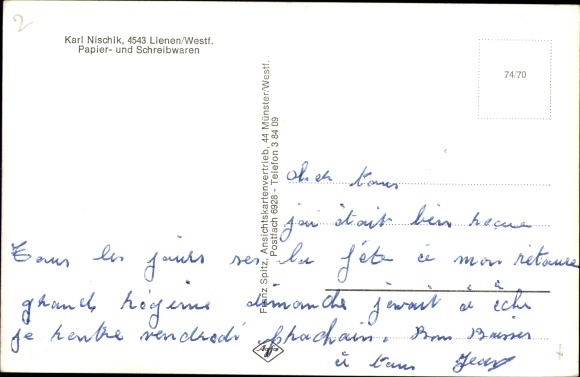 2
Karl Nischik, 4543 Lienen/Westf.
Papier- und Schreibwaren
74/70
Franz Spitz, Ansichtskartenvertrieb, 44 Münster/Westf.
Postfach 6928 - Telefon 3 84 09
cher tous
j'ai était bien reçue
Tous les jours ses la fête à mon retour
grand régime dimanche j'irait à
je rentre vendredi prochain. Bon Baiser
à tous Jean
Agfa